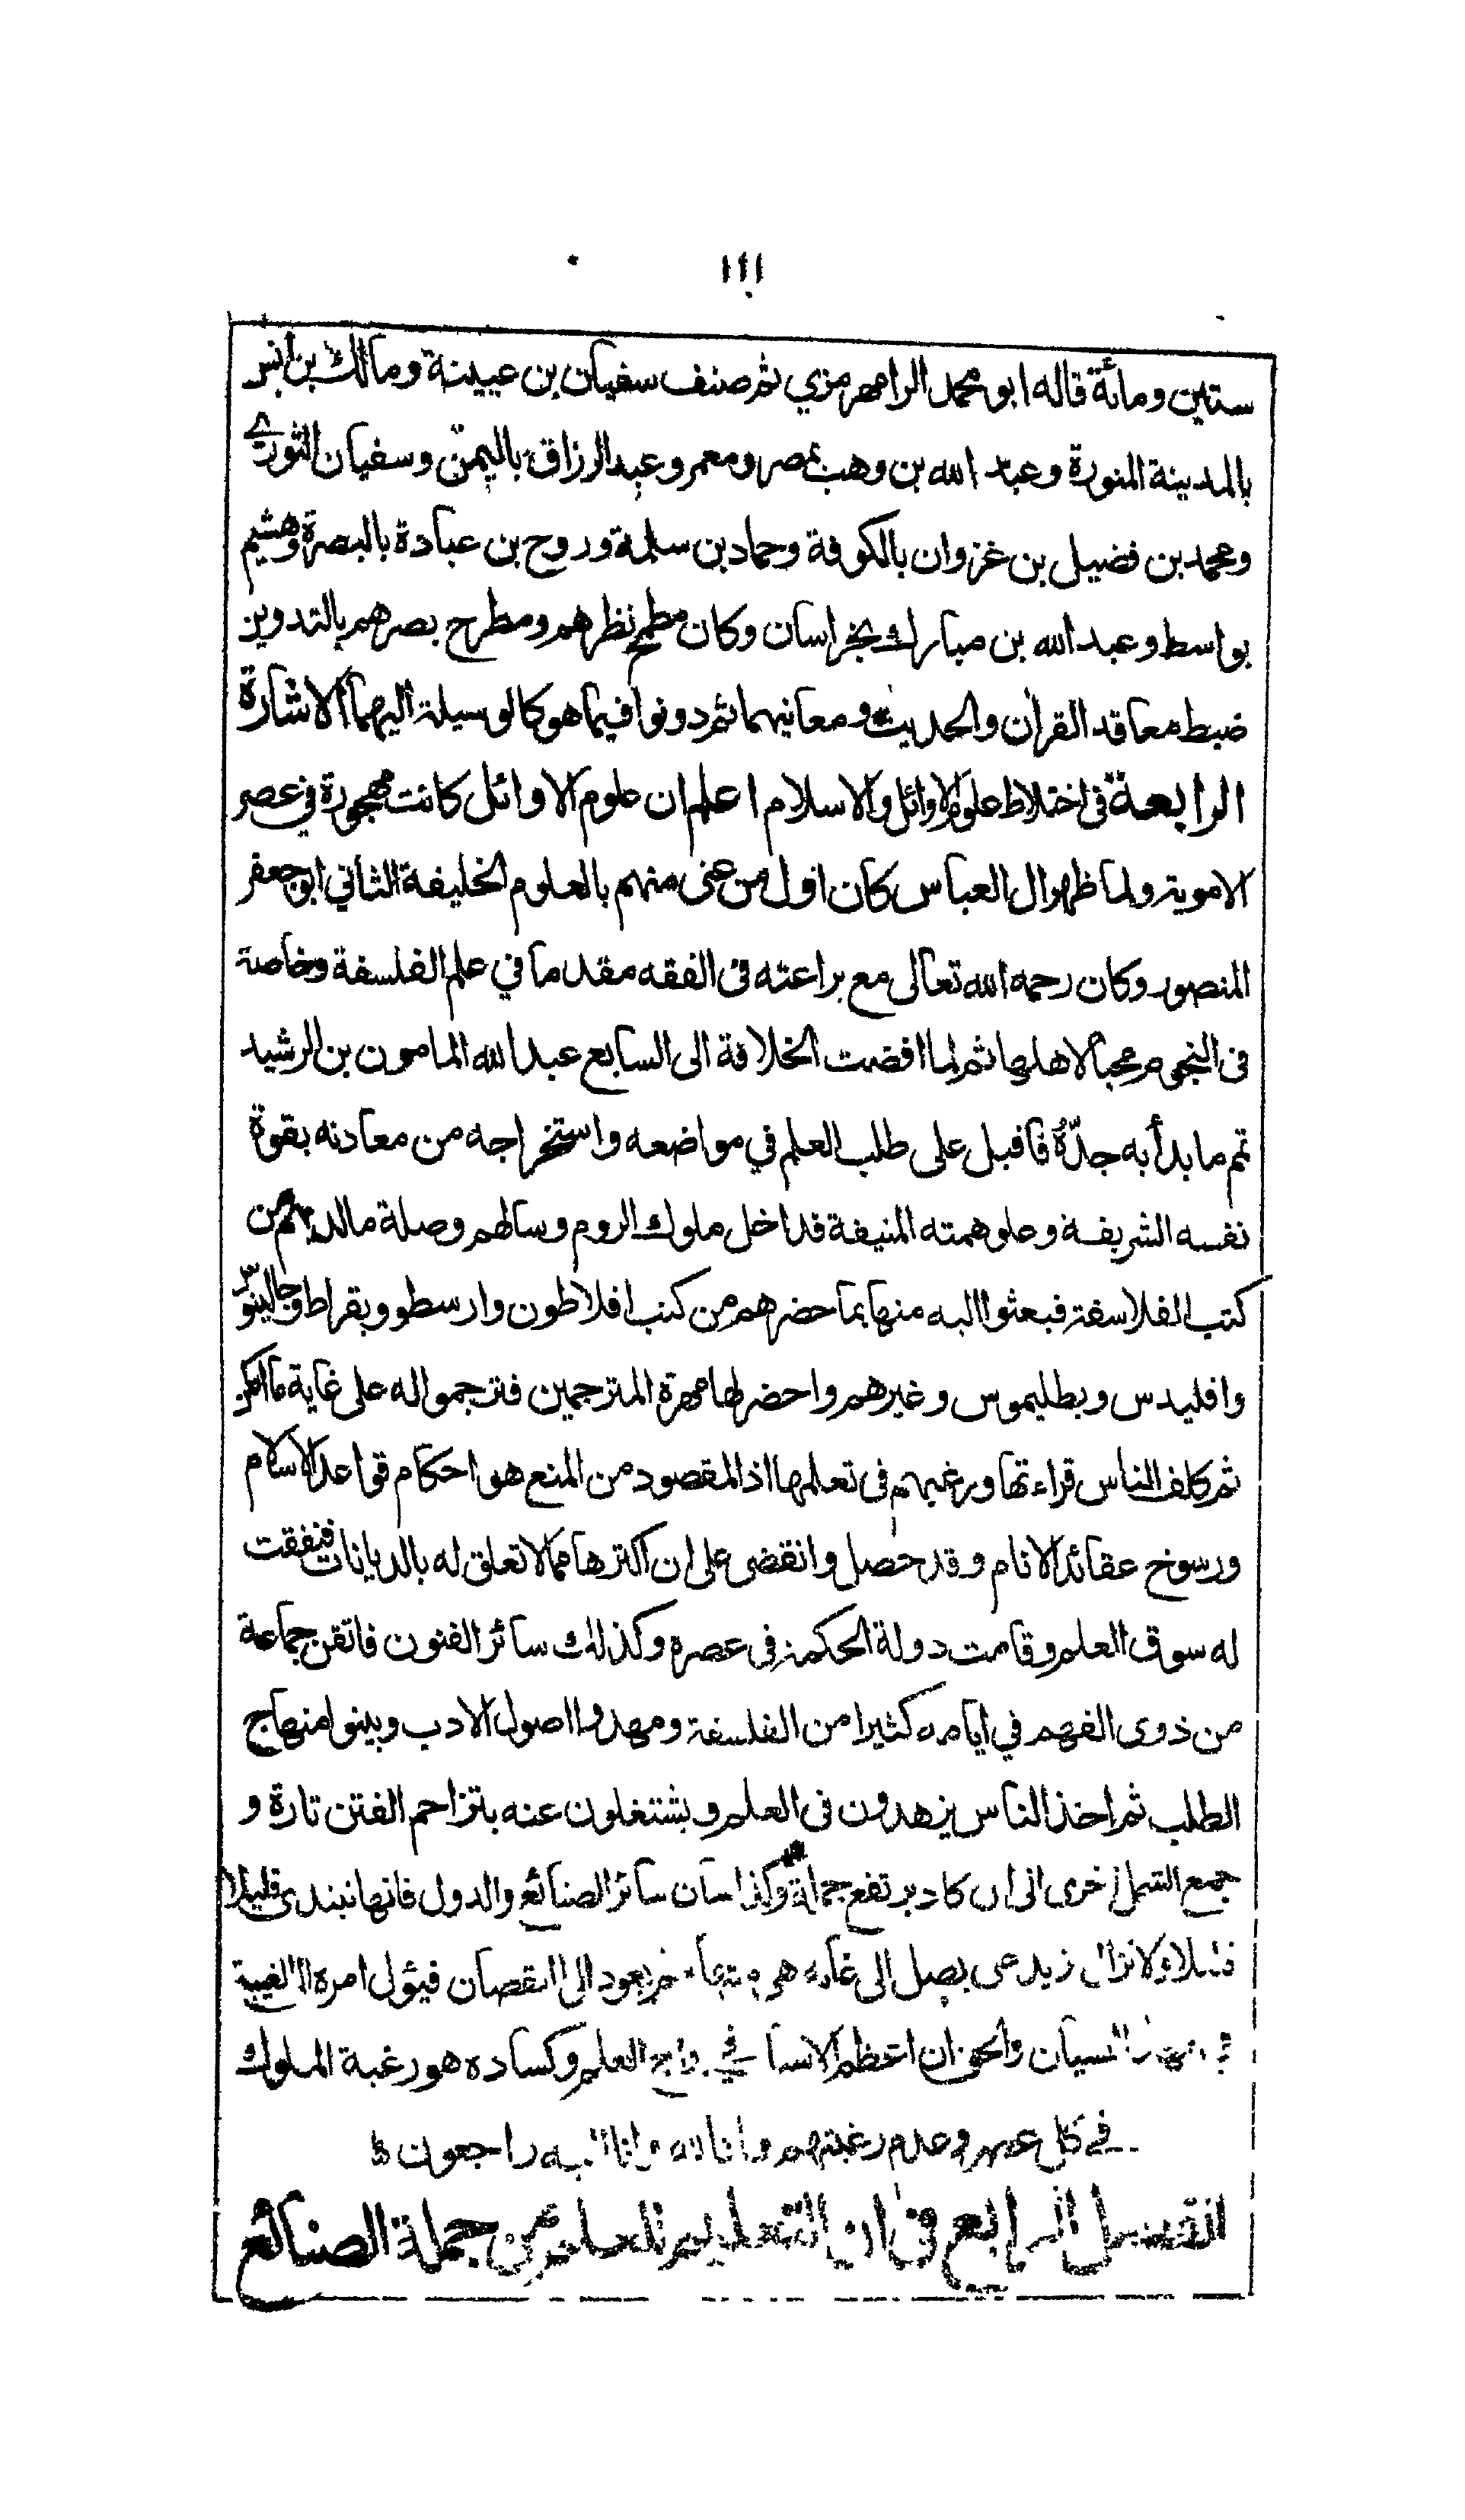 ١٤١
ستين ومائة قاله ابو محمد الرامهرمزي ثم صنف سفيان بن عيينة ومالك بن انس
بالمدينة المنورة وعبد الله بن وهب بمصر ومعمر وعبد الرزاق باليمن وسفيان الثوري
ومحمد بن فضيل بن غزوان بالكوفة وحماد بن سلمة وروح بن عبادة بالبصرة وهشيم
بواسط وعبد الله بن مبارك بخراسان وكان مطمح نظرهم ومطرح بصرهم بالتدوين
ضبط معاقد القران والحديث ومعانيهما ثم دونوا فيما هو كالوسيلة اليهما الاشارة
الرابعة فى اختلاط علوم الاوائل والاسلام اعلم ان علوم الاوائل كانت مهجورة في عصر
الاموية ولما ظهر ال العباس كان اول من عنى منهم بالعلوم الخليفة الثاني ابو جعفر
المنصور وكان رحمه الله تعالى مع براعته فى الفقه مقدما في علم الفلسفة وخاصة
فى النجوم محبا لاهلها ثم لما افضت الخلافة الى السابع عبد الله المامون بن الرشيد
تمم ما بدأ به جدّهُ فاقبل على طلب العلم في مواضعه واستخراجه من معادنه بقوة
نفسه الشريفة وعلو همته المنيفة فداخل ملوك الروم وسالهم وصلة ما لديهم من
كتب الفلاسفة فبعثوا اليه منها بما حضرهم من كتب افلاطون وارسطو وبقراط وجالينوس
واقليدس وبطليموس وغيرهم واحضر لها مهرة المترجمين فترجموا له على غاية ما امكن
ثم كلف الناس قراءتها ورغبهم فى تعلمها اذ المقصود من المنع هو احكام قواعد الاسلام
ورسوخ عقائد الانام وقد حصل وانقضى على ان اكثرها مما لا تعلق له بالديانات فنفقت
له سوق العلم وقامت دولة الحكمة فى عصره وكذلك سائر الفنون فاتقن جماعة
من ذوى الفهم في ايامه كثيرا من الفلسفة ومهدوا اصول الادب وبينوا منهاج
الطلب ثم اخذ الناس يزهدون فى العلم ويشتغلون عنه بتزاحم الفتن تارة و
جمع الشمل اخرى الى ان كاد يرتفع جملة وكذا شان سائر الصنائع والدول فانها تبتدى قليلا
قليلا ولا تزال يزيد حتى يصل الى غاية هي منتهاه ثم يعود الى النقصان فيؤل امره الى الغيبة
في النسيان والحق ان اعظم الاسباب في رواج العلم وكساده هو رغبة الملوك
في كل عصر وعدم رغبتهم فانا لله وانا اليه راجعون
الفصل الرابع فى ان التعليم للعلم من جملة الصنائع